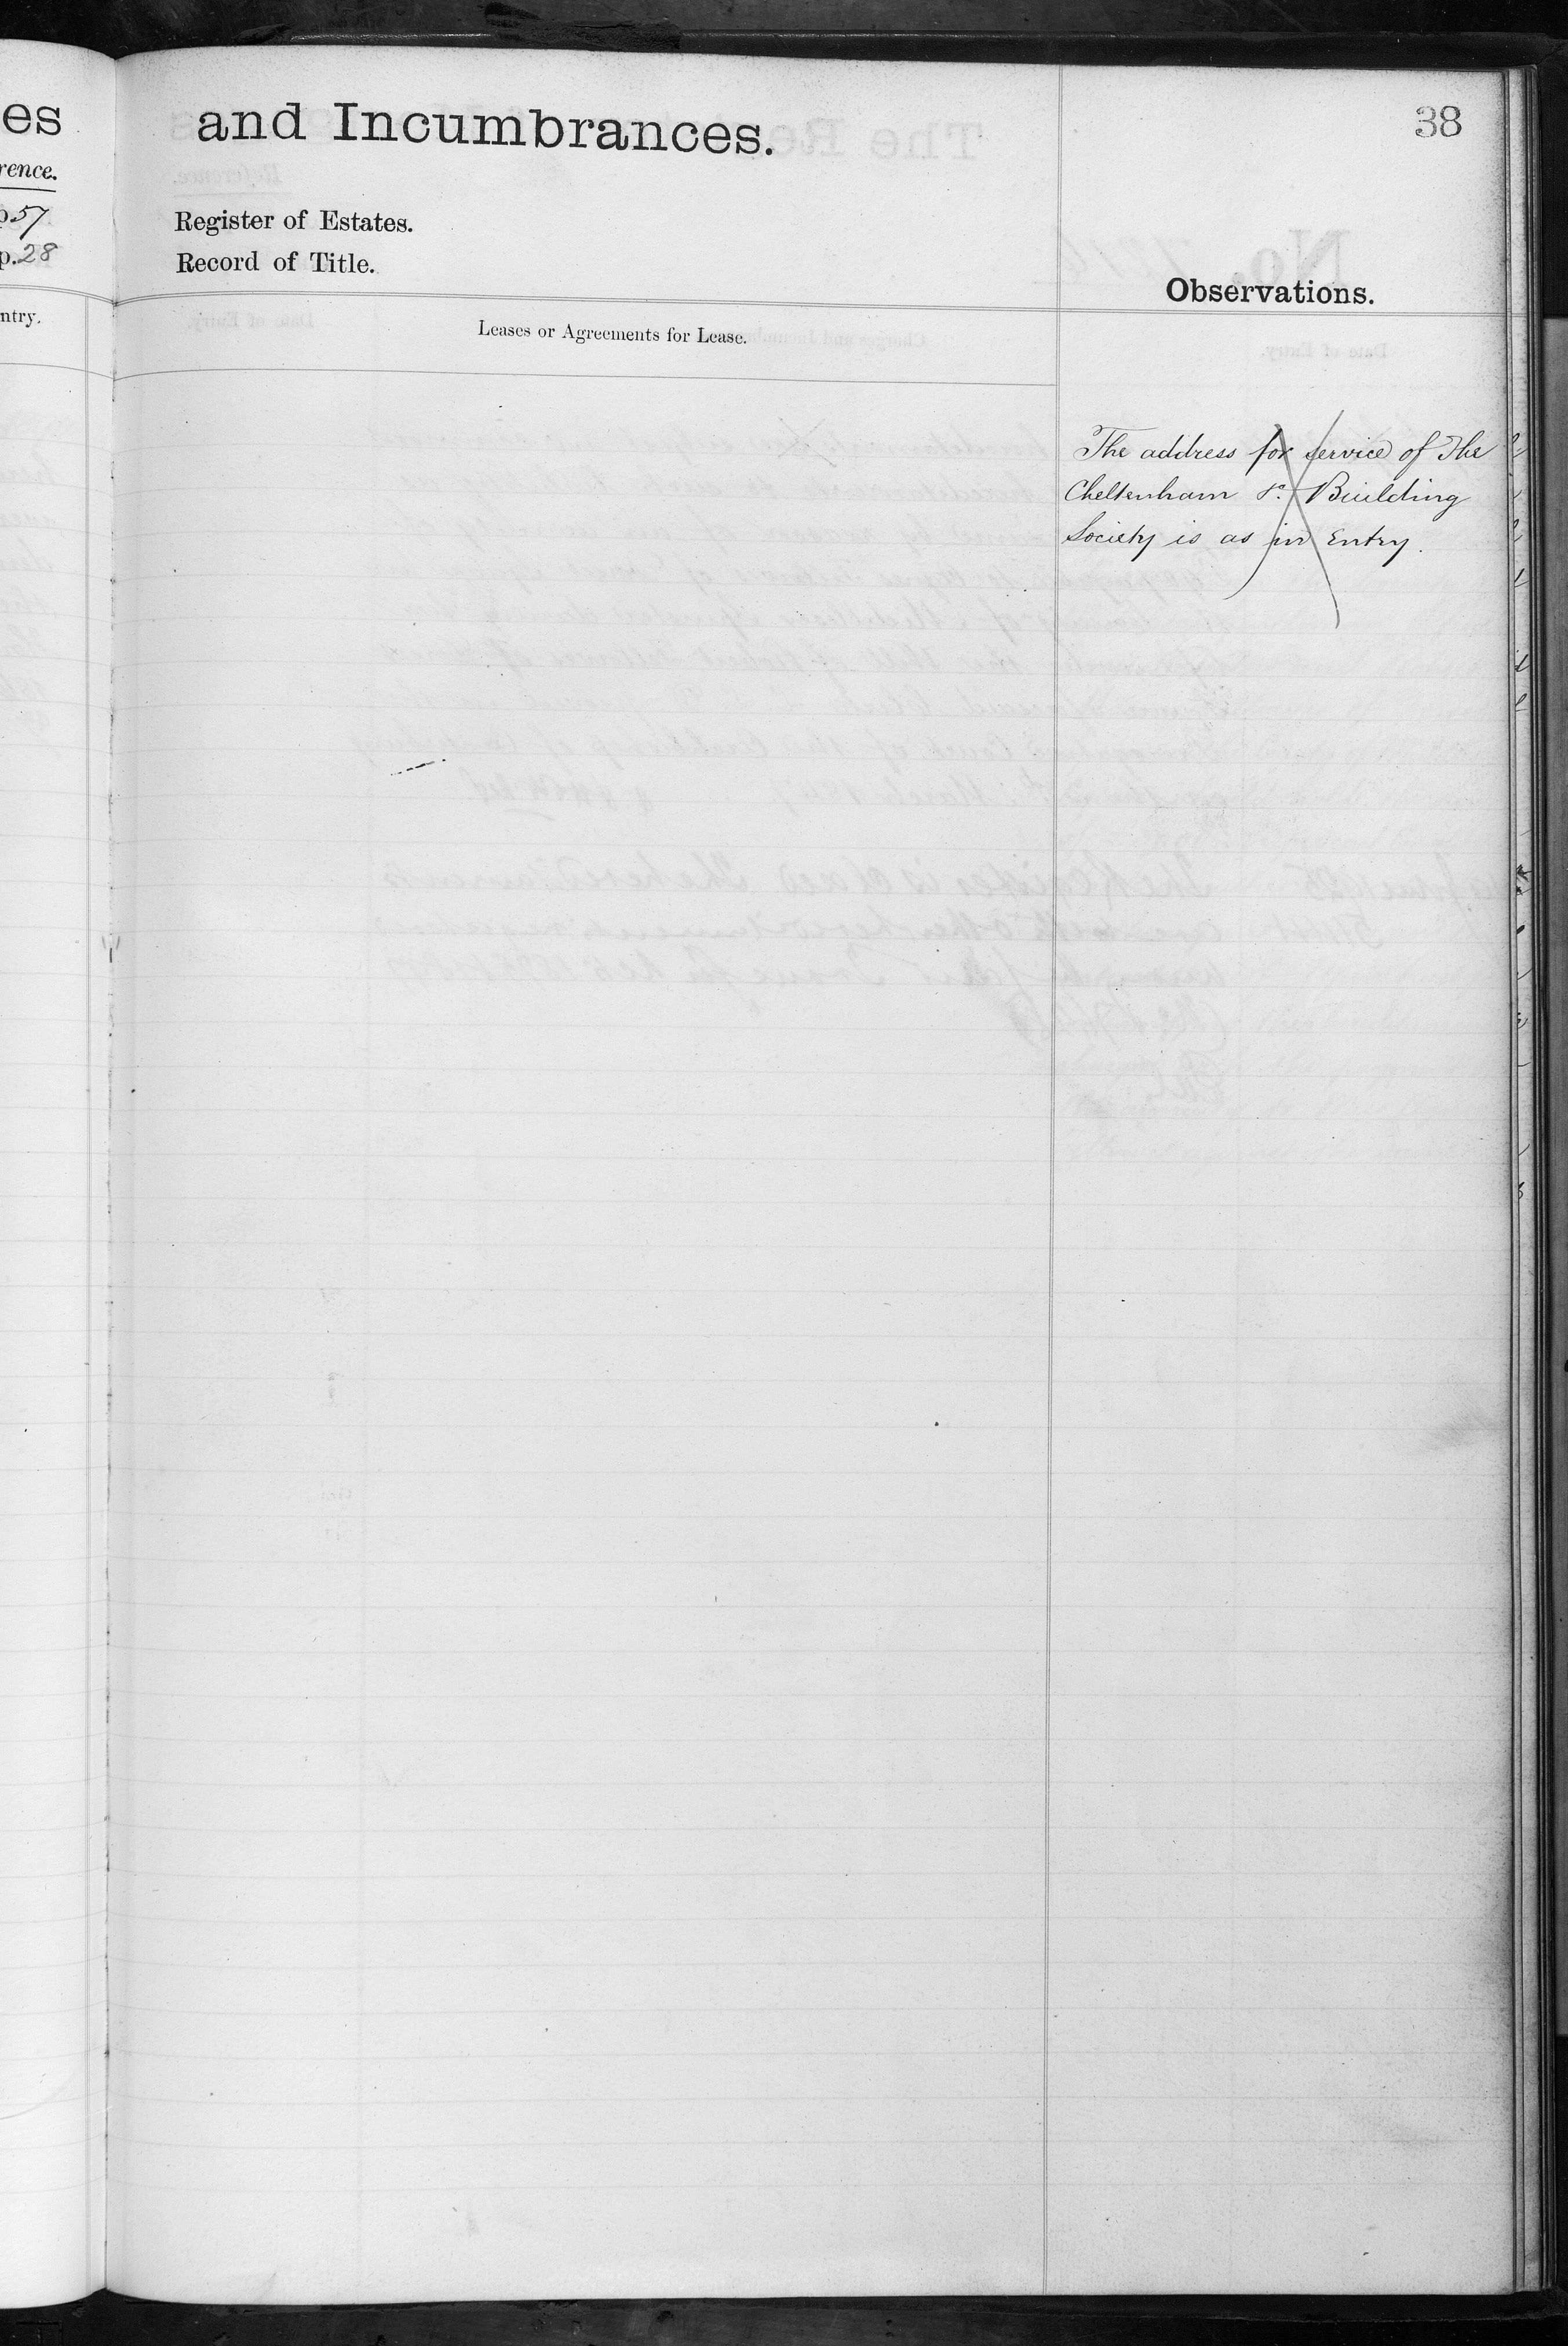 es
rence.
p.57
p.28
ntry.
and Incumbrances.
38
Register of Estates.
Record of Title.
Observations.
Leases or Agreements for Lease.
The address for service of The
Cheltenham &c. Building
Society is as in Entry.